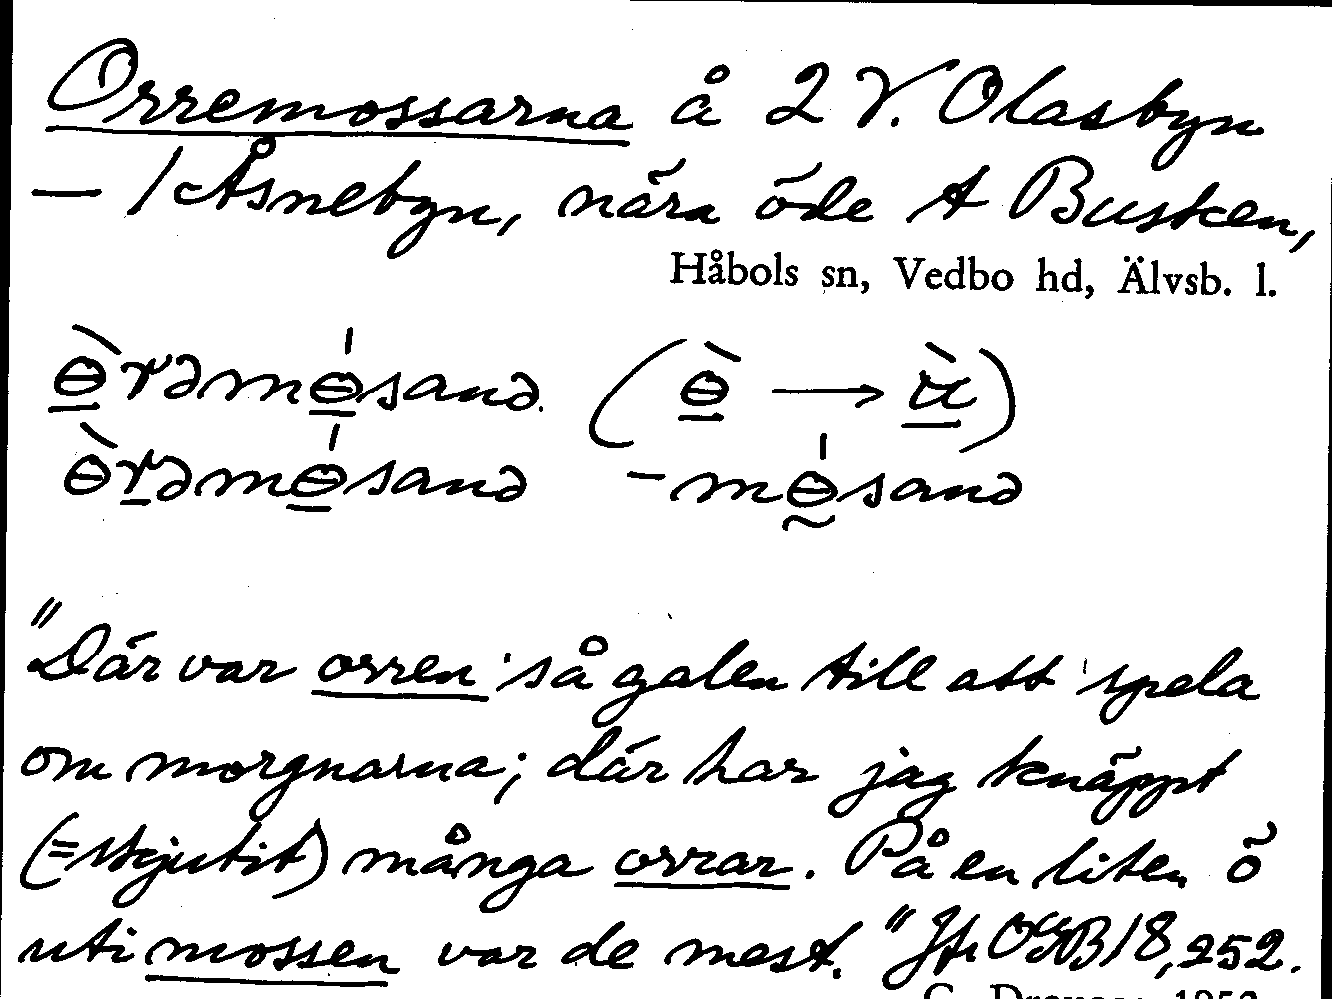 Orremossarna å 2 V. Olasbyn
— 1 Åsnebyn, nära öde t Busken,
Håbols sn, Vedbo hd, Älvsb. l.
ɵ̀rəmɵ́sanə. (ɵ̀ → ù)
ɵ̀rəmɵ́sanə -mɵ́sanə
"Där var orren så galen till att spela
om morgnarna; där har jag knäppt
(=skjutit) många orrar. På en liten ö
uti mossen var de mest." Jfr OGB 18, 252.